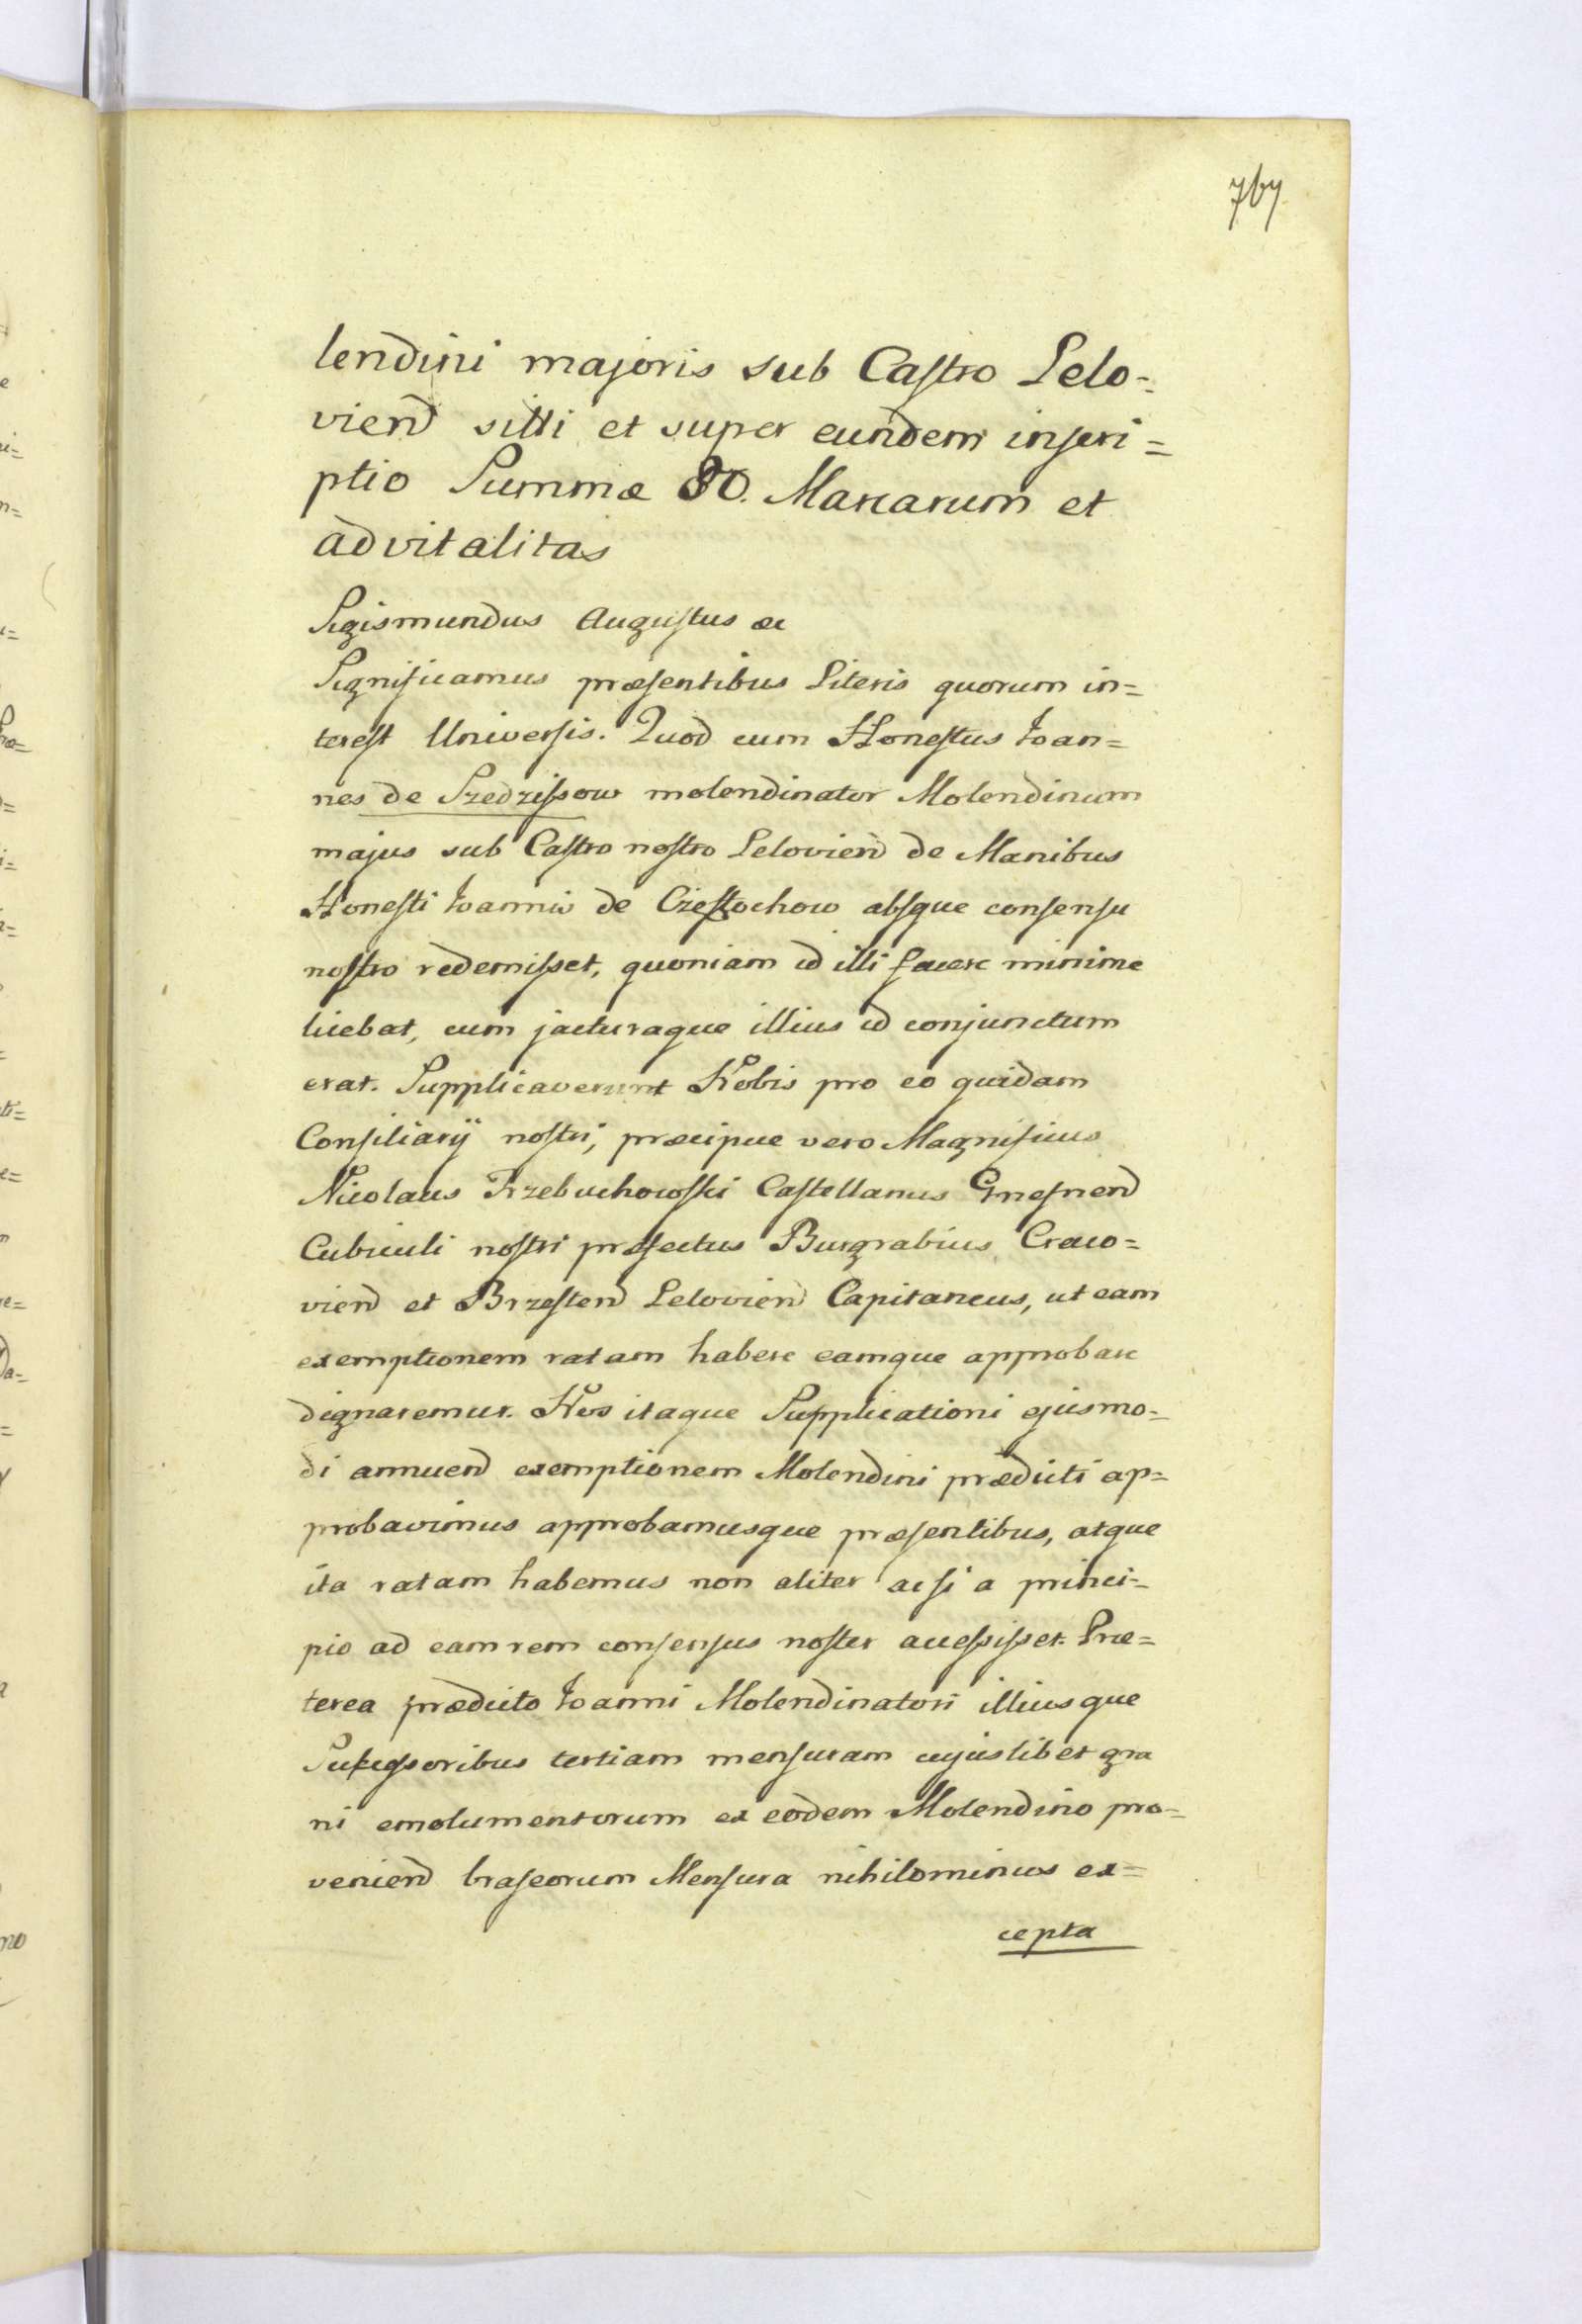 767
lendini majoris sub Castro Lelo=
vien̄ sitti et super eundem inscri=
ptio Summæ 80. Marcarum et
advitalitas
Sigismundus Augustus æc
Significamus præsentibus Literis quorum in=
terest Universis. Quod cum Honestus Joan=
nes de Szedziszow molendinator Molendinum
majus sub Castro nostro Lelovien̄ de Manibus
Honesti Joannis de Częstochow absque consensu
nostro redemisset, quoniam id illi facere minime
licebat, cum jacturaque illius id conjunctum
erat. Supplicaverunt Nobis pro eo quidam
Consiliarij nostri, præcipue vero Magnificus
Nicolaus Trzebuchowski Castellanus Gnesnen̄
Cubiculi nostri præfectus Burgrabius Craco=
vien̄ et Brzesten̄ Lelovien̄ Capitaneus, ut eam
exemptionem ratam habere eamque approbare
dignaremur. Nos itaque Supplicationi ejusmo=
di annuen̄ exemptionem Molendini prædicti ap=
probavimus approbamusque præsentibus, atque
ita ratam habemus non aliter acsi a princi=
pio ad eam rem consensus noster accessisset. Præ=
terea prædicto Joanni Molendinatori illiusque
Sukcessoribus tertiam mensuram cujuslibet gra
ni emolumentorum ex eodem Molendino pro=
venien̄ braseorum Mensura nihilominus ex=
cepta